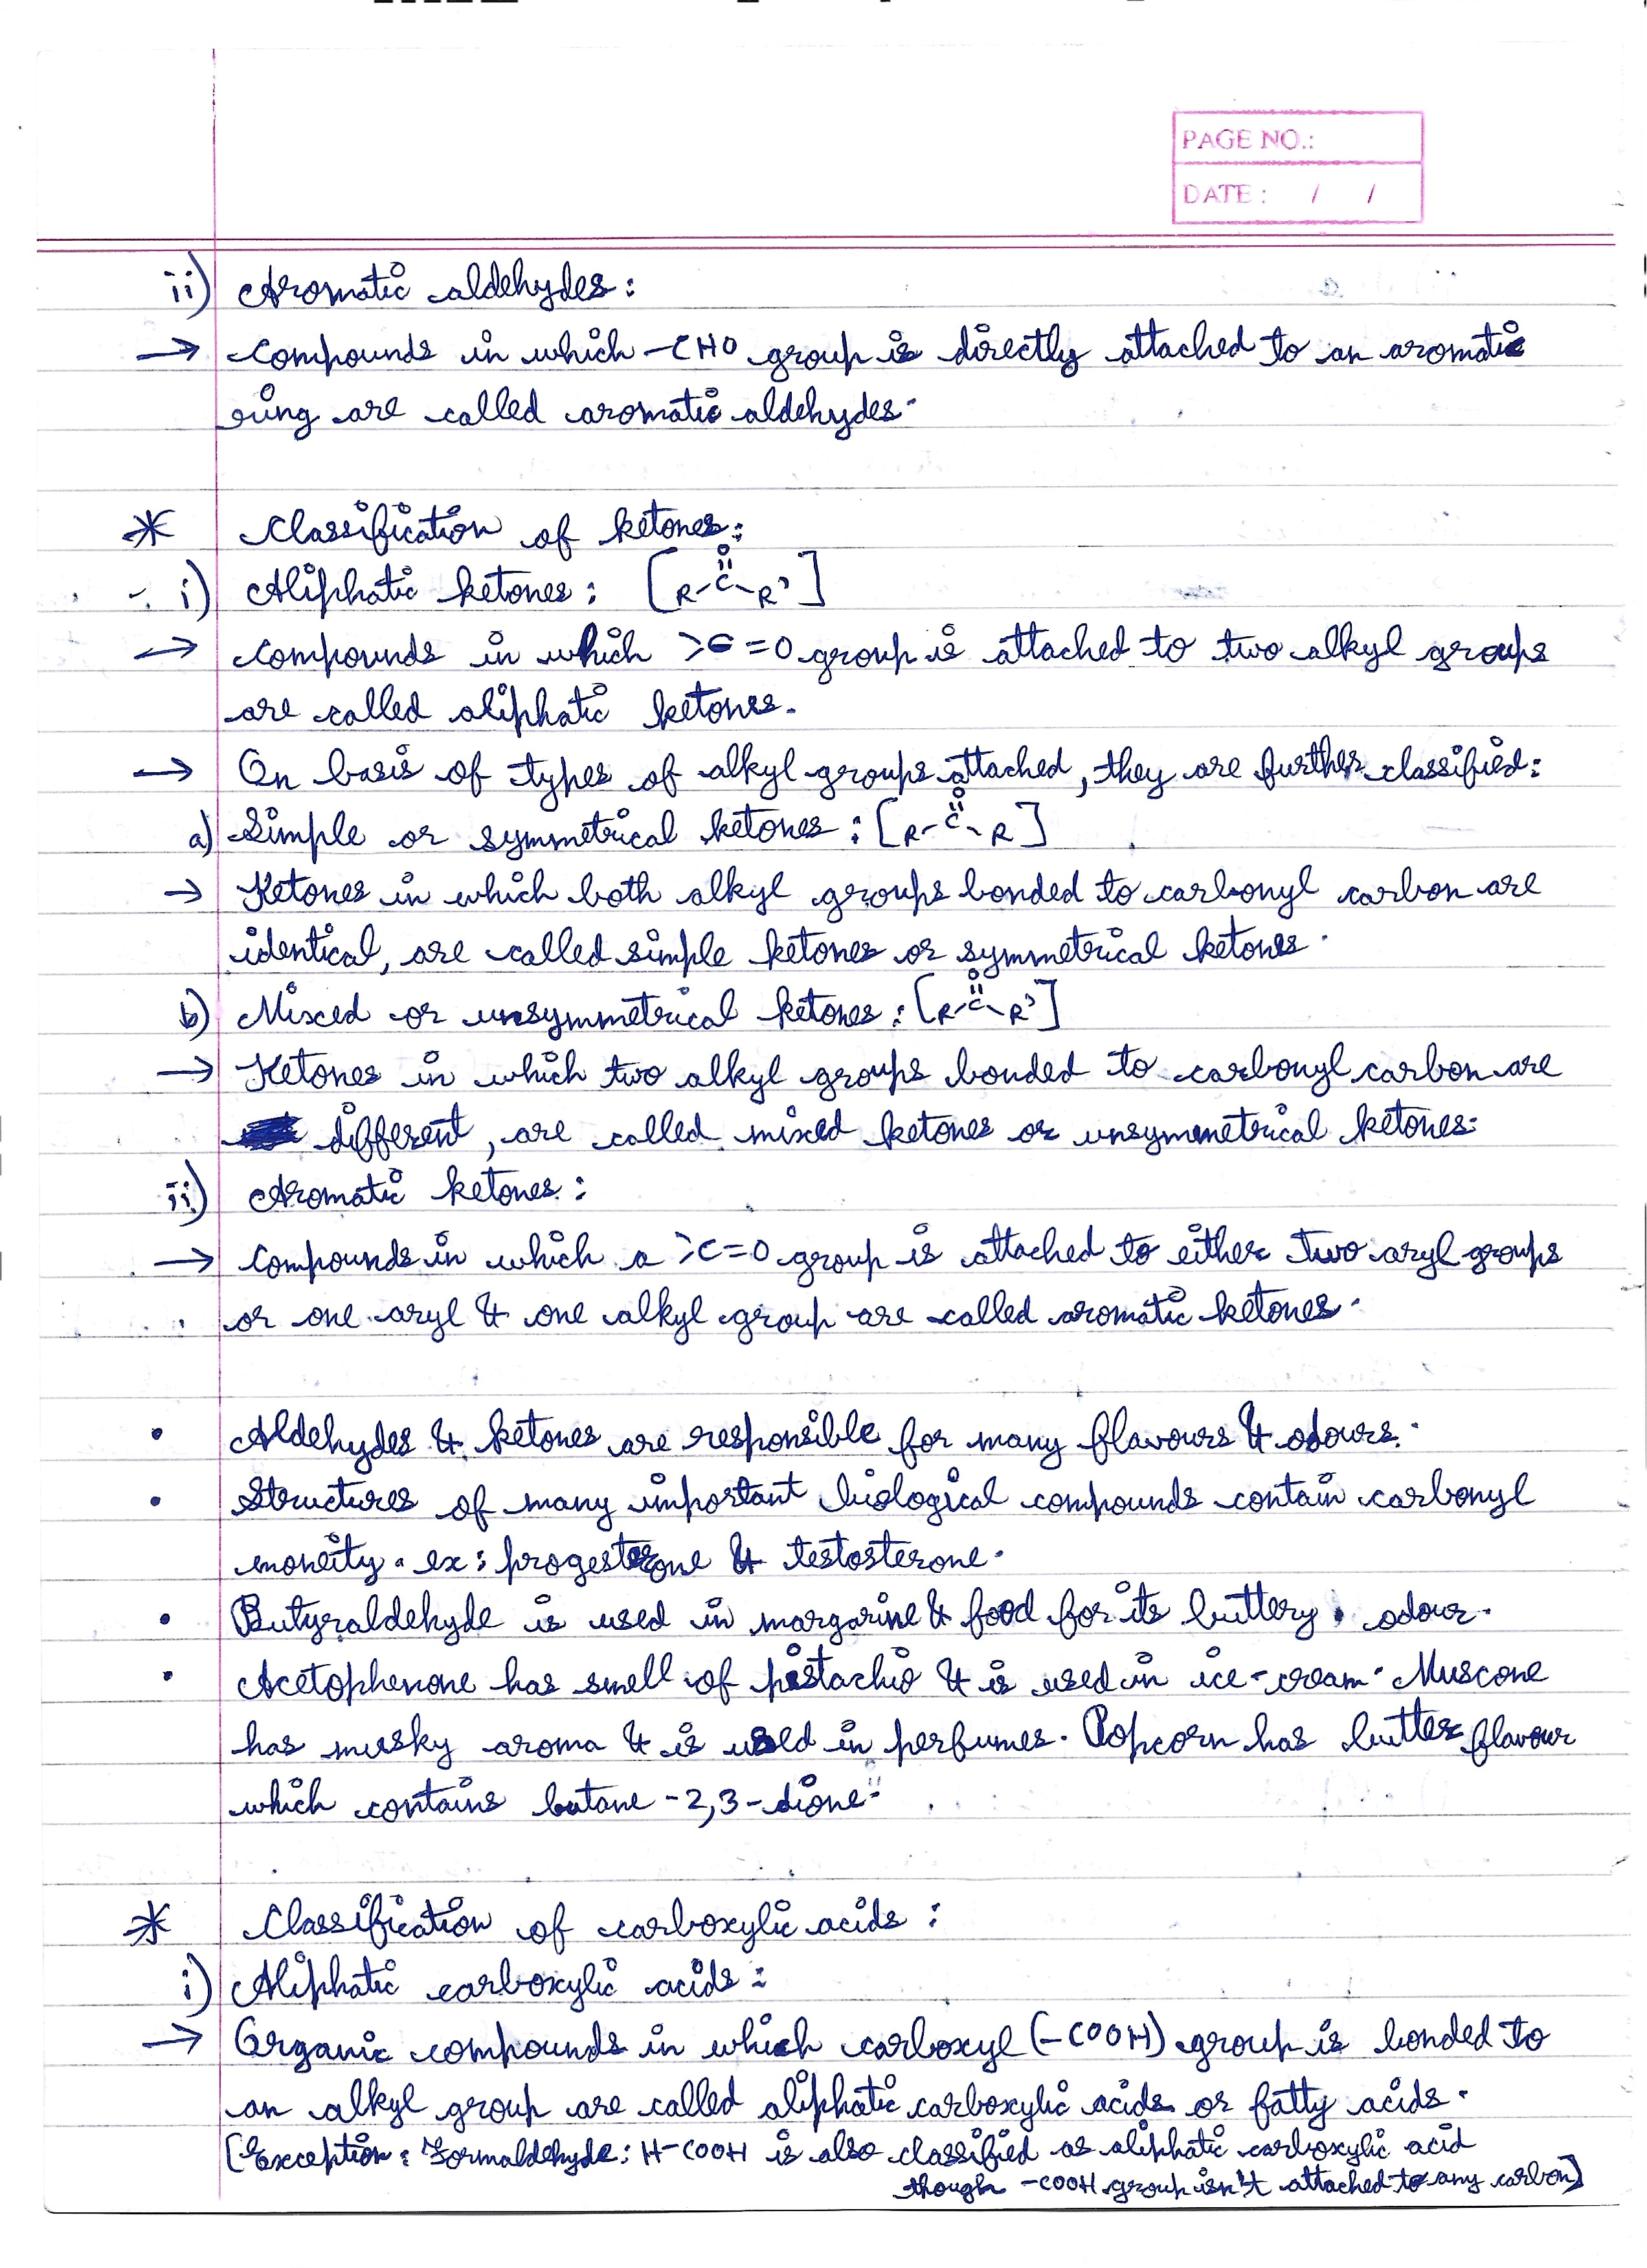 PAGE NO.:
DATE : / /
ii) Aromatic aldehydes :
→ Compounds in which -CHO group is directly attached to an aromatic
ring are called aromatic aldehydes.
* Classification of ketones :
i) Aliphatic ketones : [R-C-R']
O
→ Compounds in which >C=O group is attached to two alkyl groups
are called aliphatic ketones.
→ On basis of types of alkyl groups attached, they are further classified :
a) Simple or symmetrical ketones : [R-C-R]
O
→ Ketones in which both alkyl groups bonded to carbonyl carbon are
identical, are called simple ketones or symmetrical ketones.
b) Mixed or unsymmetrical ketones : [R-C-R']
O
→ Ketones in which two alkyl groups bonded to carbonyl carbon are
different, are called mixed ketones or unsymmetrical ketones.
ii) Aromatic ketones :
→ Compounds in which a >C=O group is attached to either two aryl groups
or one aryl & one alkyl group are called aromatic ketones.
• Aldehydes & ketones are responsible for many flavours & odours.
• Structures of many important biological compounds contain carbonyl
moneity. ex : progesterone & testosterone.
• Butyraldehyde is used in margarine & food for its buttery odour.
• Acetophenone has smell of pistachio & is used in ice-cream. Muscone
has musky aroma & is used in perfumes. Popcorn has butter flavour
which contains butane-2,3-dione.
* Classification of carboxylic acids :
i) Aliphatic carboxylic acids :
→ Organic compounds in which carboxyl (-COOH) group is bonded to
an alkyl group are called aliphatic carboxylic acids or fatty acids.
[Exception : Formaldehyde : H-COOH is also classified as aliphatic carboxylic acid
though -COOH group isn't attached to any carbon]